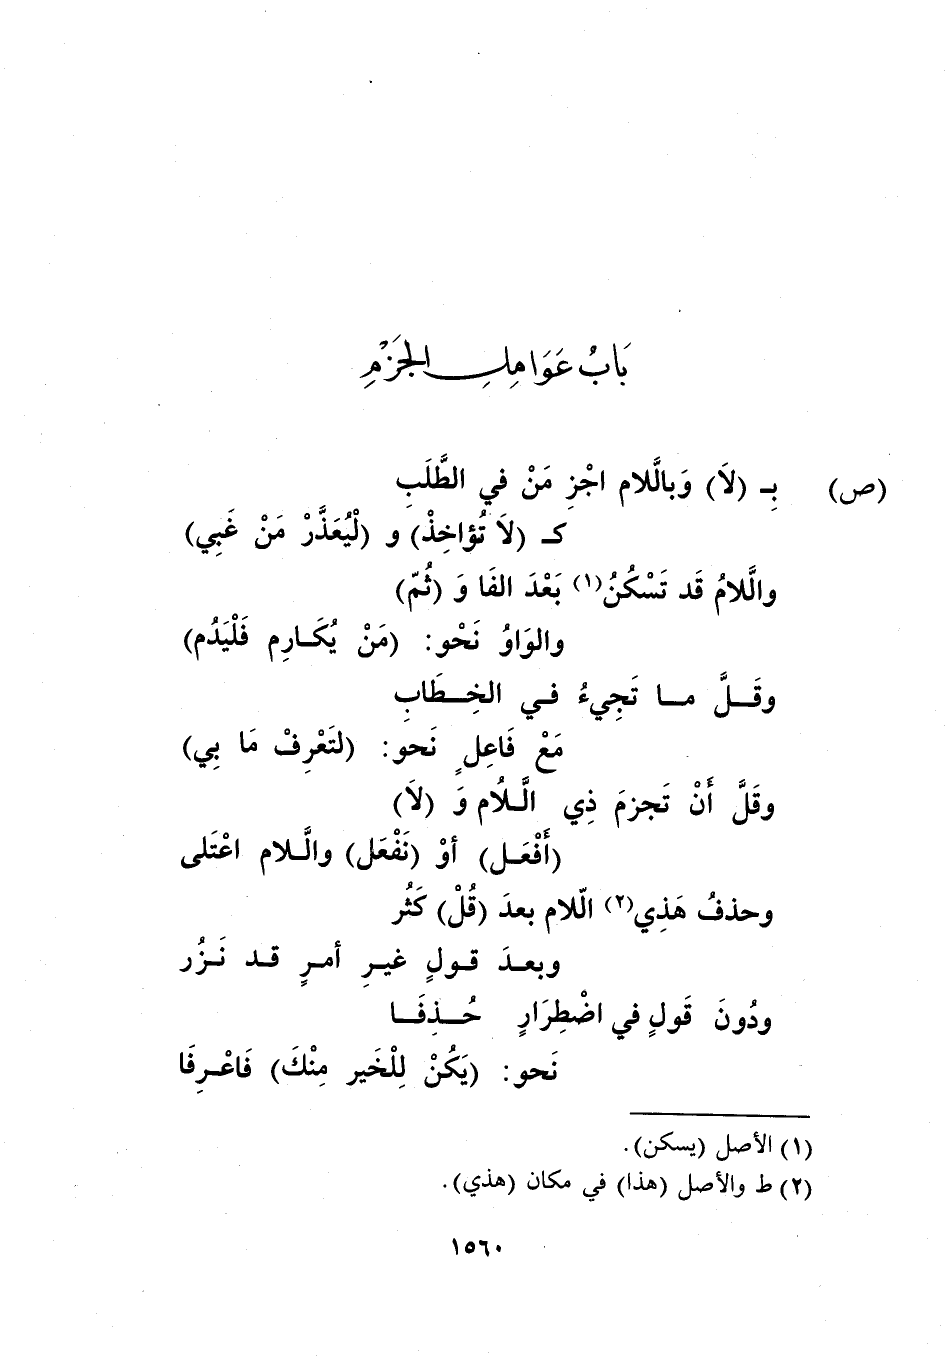 بَابُ عَوَامِلِ الجَزْمِ
(ص) بِـ (لَا) وَبالَّلام اجْزِ مَنْ في الطَّلَبِ
كـ (لاَ تُؤاخِذْ) و (لْيُعَذَّرْ مَنْ غَبِي)
والَّلامُ قَد تَسْكُنُ(١) بَعْدَ الفَا وَ (ثُمّ)
والوَاوُ نَحْو: (مَنْ يُكَـارِم فَلْيَدُم)
وقَــلَّ مــا تَجِيءُ فـي الخِـطَابِ
مَعْ فَاعِلٍ نَحو: (لتَعْرِفْ مَا بِي)
وقَلَّ أَنْ تَجزمَ ذِي الَّـلُام وَ (لاَ)
(أَفْعَـل) أوْ (نَفْعَل) والَّـلام اعْتَلى
وحذفُ هَذِي(٢) الّلام بعدَ (قُلْ) كَثُر
وبعـدَ قـولٍ غيـرِ أمـرٍ قـد نَـزُر
ودُونَ قَولٍ في اضْطِرَارٍ حُــذِفَــا
نَحو: (يَكُنْ لِلْخَير مِنْكَ) فَاعْـرِفَا
(١) الأصل (يسكن).
(٢) ط والأصل (هذا) في مكان (هذي).
١٥٦٠